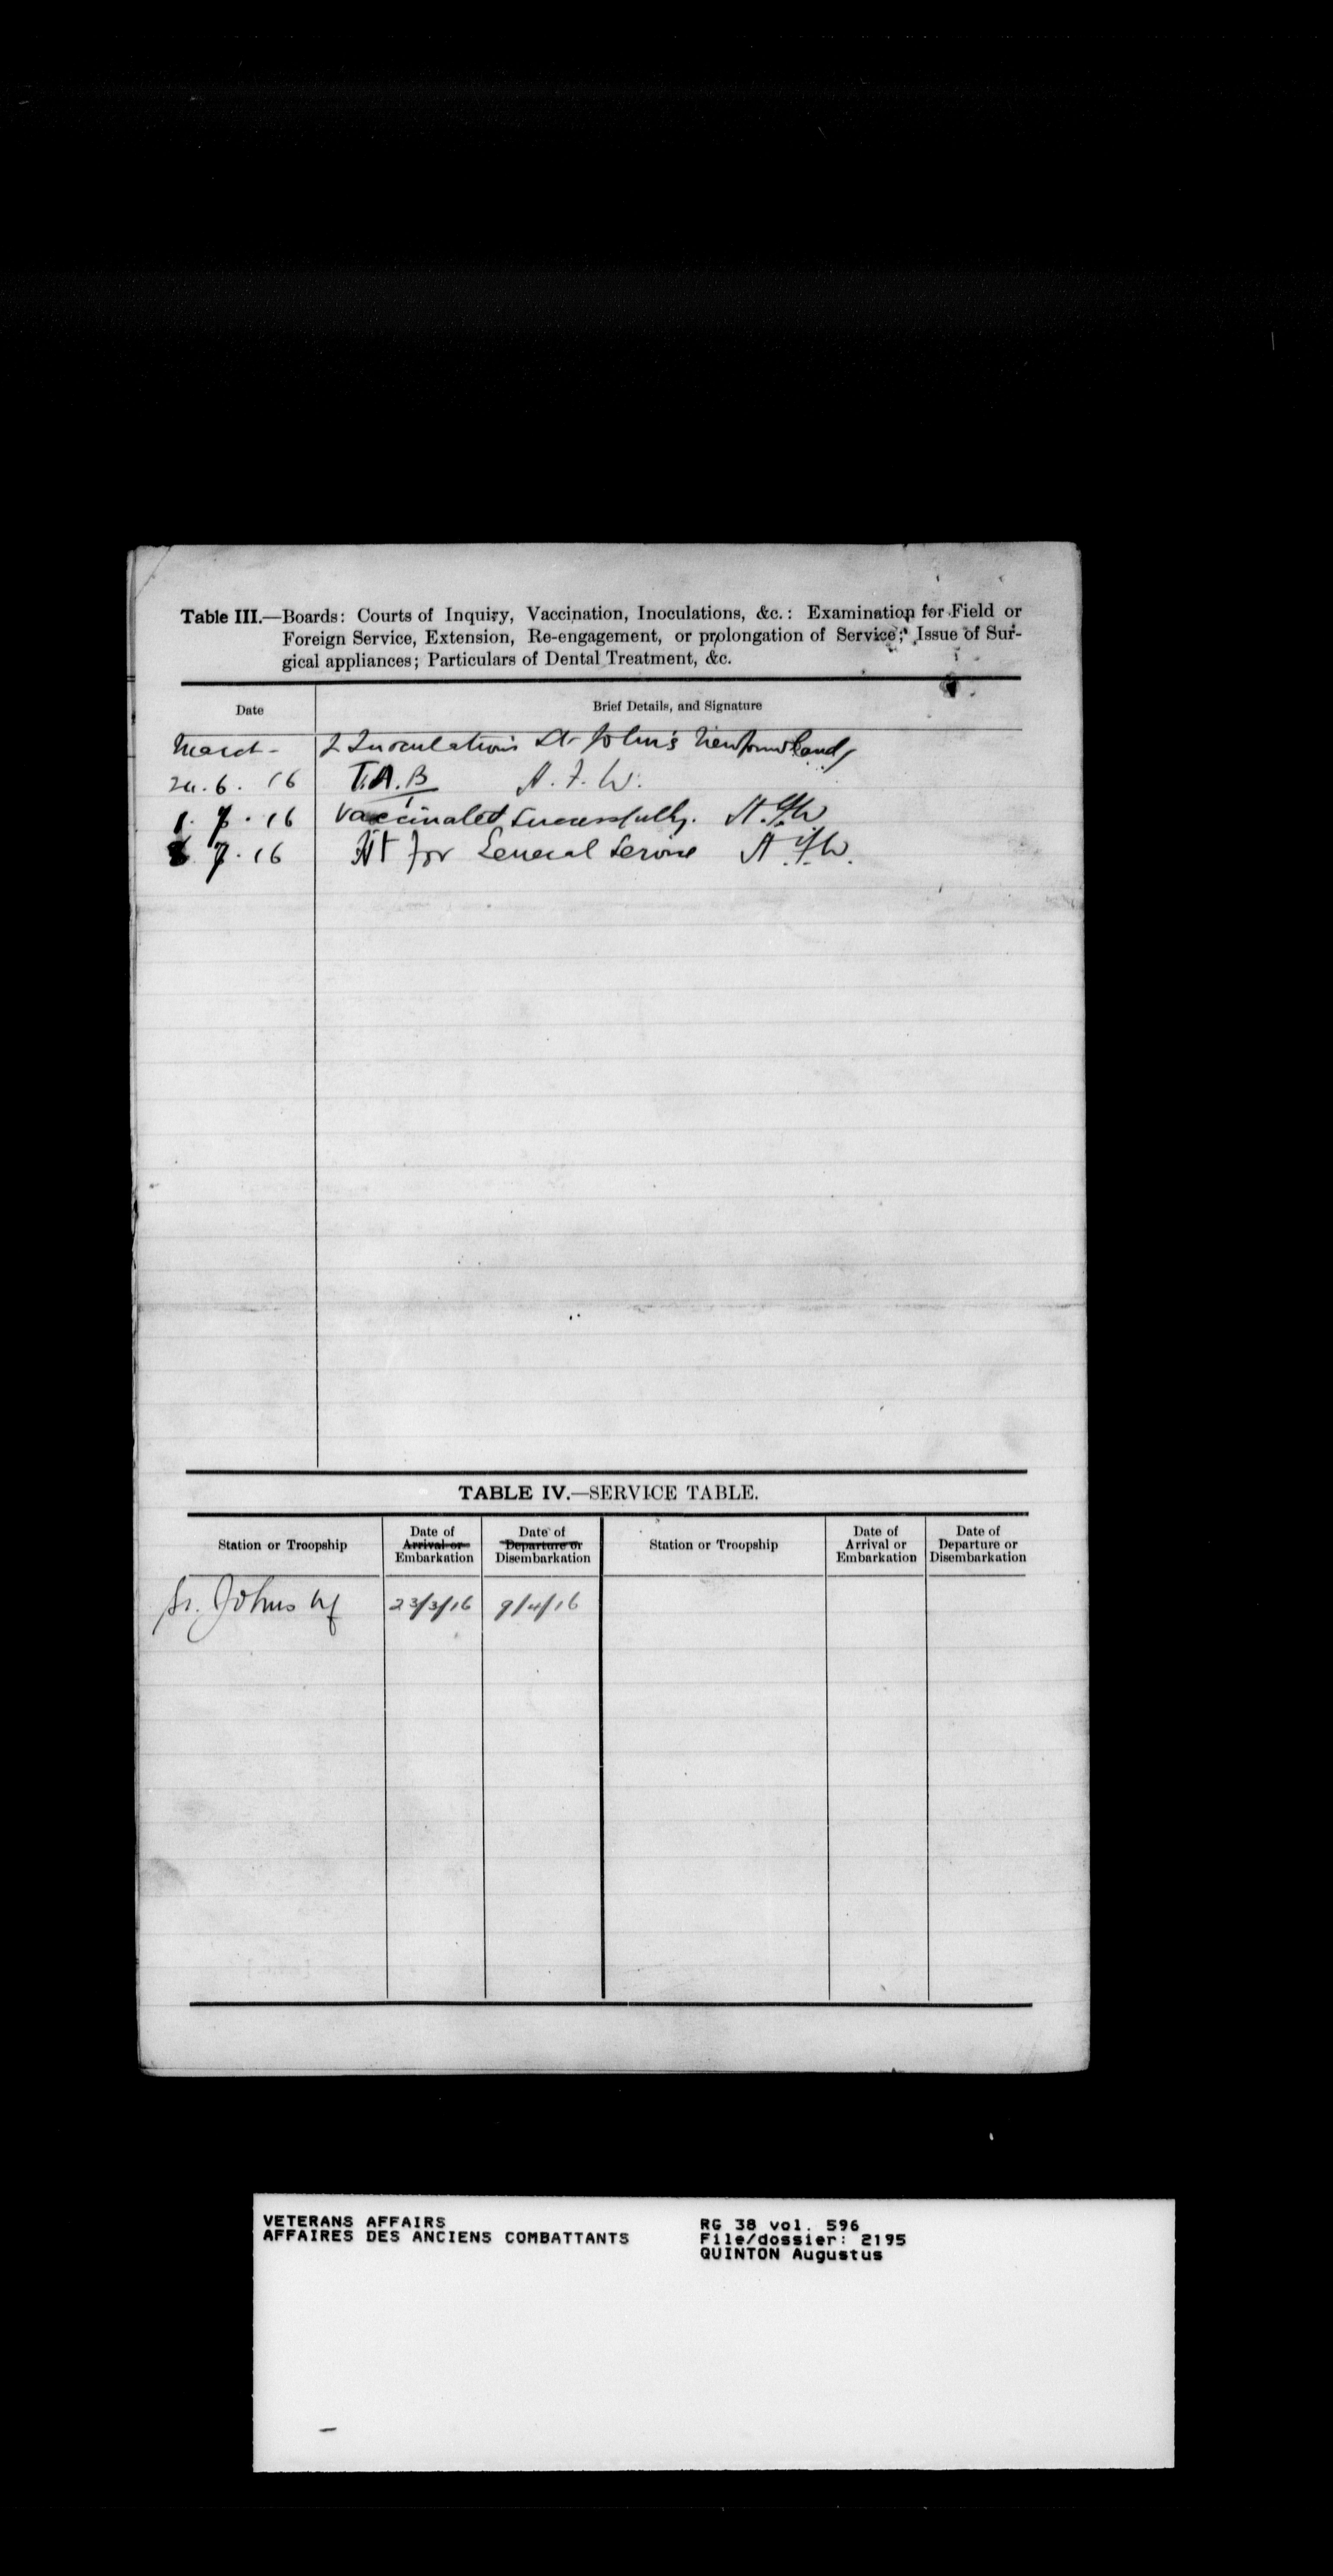 Table III.—Boards: Courts of Inquiry, Vaccination, Inoculations, &c.: Examination for Field or
Foreign Service, Extension, Re-engagement, or prolongation of Service; Issue of Sur-
gical appliances; Particulars of Dental Treatment, &c.
Date Brief Details, and Signature
March - 2 Inoculations St John's Newfoundland
24.6.16 T.A.B A.F.W.
1.7.16 Vaccinated successfully. A.F.W
7.16 Fit for General Service A.F.W.
TABLE IV.—SERVICE TABLE.
Station or Troopship Date of Arrival or Embarkation Date of Departure or Disembarkation Station or Troopship Date of Arrival or Embarkation Date of Departure or Disembarkation
St. Johns Nf 23/3/16 9/4/16
VETERANS AFFAIRS RG 38 vol. 596
AFFAIRES DES ANCIENS COMBATTANTS File/dossier: 2195
QUINTON Augustus